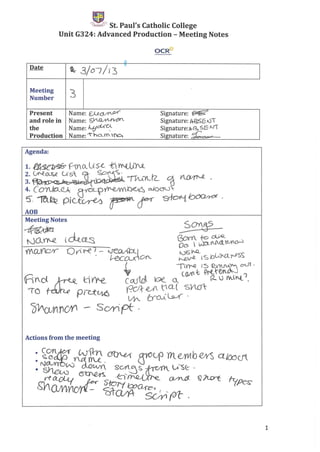 St. Paul's Catholic College
Unit G324: Advanced Production – Meeting Notes
OCR
Date
3/07/13
Meeting Number
3
Present and role in the Production
Name: Eleanor Signature:
Name: Shannon Signature: ABSENT
Name: Lydia Signature: ABSENT
Name: Thamina Signature:
Agenda:
1. Finalise timeline
2. Create list of songs.
3. Think of name.
4. Contact group members about
5. Take pictures for story board.
AOB
Meeting Notes
Name ideas
Manor Drive? - Location
Find free time
To take pictures
could be a
potential shot
in trailer.
Shannon - Script.
Songs
Born to die
Do I wanna know
have is blindness
Time is running out.
Can't pretend
R U mine?
Actions from the meeting
• Confer with other group members about
name.
• Narrow down songs from list.
• Show others timeline and shot types
ready for story board.
Shannon - Start Script.
1